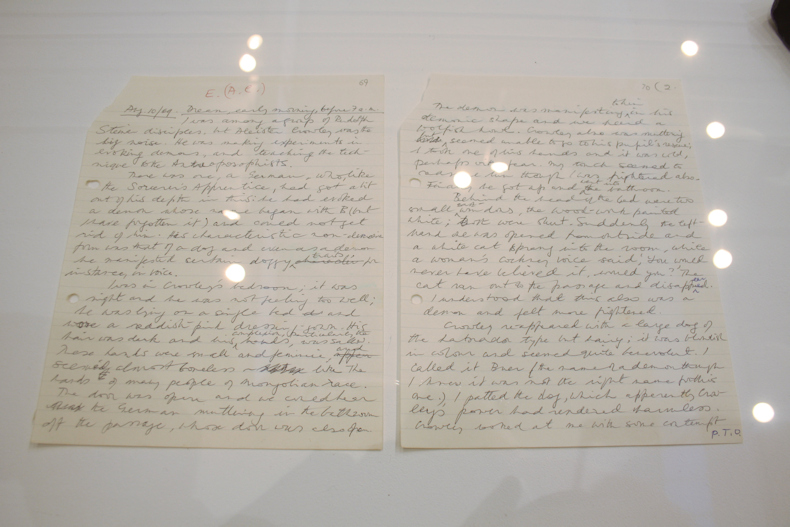 E. (A.C.)
69
Aug. 10/69. Dream, early morning, before 7 a
I was among a group of Rudolph
Steiner disciples, but Aleister Crowley was the
big noise. He was making experiments in
evoking demons, and teaching the tech-
nique to the Anthroposophists.
There was one, a German, who, like
the Sorcerer's Apprentice, had got a bit
out of his depth in this: he had evoked
a demon whose name began with B (but
I have forgotten it) and could not get
rid of him. His characteristic non-demon
form was that of a dog and even as a demon
he manifested certain doggy traits, for
instance, in voice.
I was in Crowley's bedroom; it was
night and he was not feeling too well;
he was lying on a single bed and
wore a reddish pink dressing-gown. His
hair was dark and his complexion, particularly the
hands, was sallow.
These hands were small and feminine, and
seemed almost boneless - like the
hands of many people of Mongolian race.
The door was open and we could hear
the German muttering in the bathroom
off the passage, whose door was also open
70 (2.
The demon was manifesting to him in his
demonic shape and we heard a
wolfish howl. Crowley also was muttering
but seemed unable to go to his pupil's rescue;
I took one of his hands and it was cold,
perhaps with fear. My touch seemed to
reassure him though I was frightened also.
Finally he got up and went into the bathroom.
Behind the head of the bed were two
small windows, the wood-work painted
white; both were shut. Suddenly the left-
hand one was opened from outside and
a white cat sprang into the room, while
a woman's cockney voice said; 'You would
never have believed it, would you?' The
cat ran out to the passage and disappeared.
I understood that this also was a
demon and felt more frightened.
Crowley reappeared with a large dog of
the labrador type but hairy; it was blackish
in colour and seemed quite benevolent. I
called it (the name of a demon though
I knew it was not the right name for this
one.) I patted the dog, which apparently Crow-
ley's power had rendered harmless.
Crowley looked at me with some contempt
P.T.O